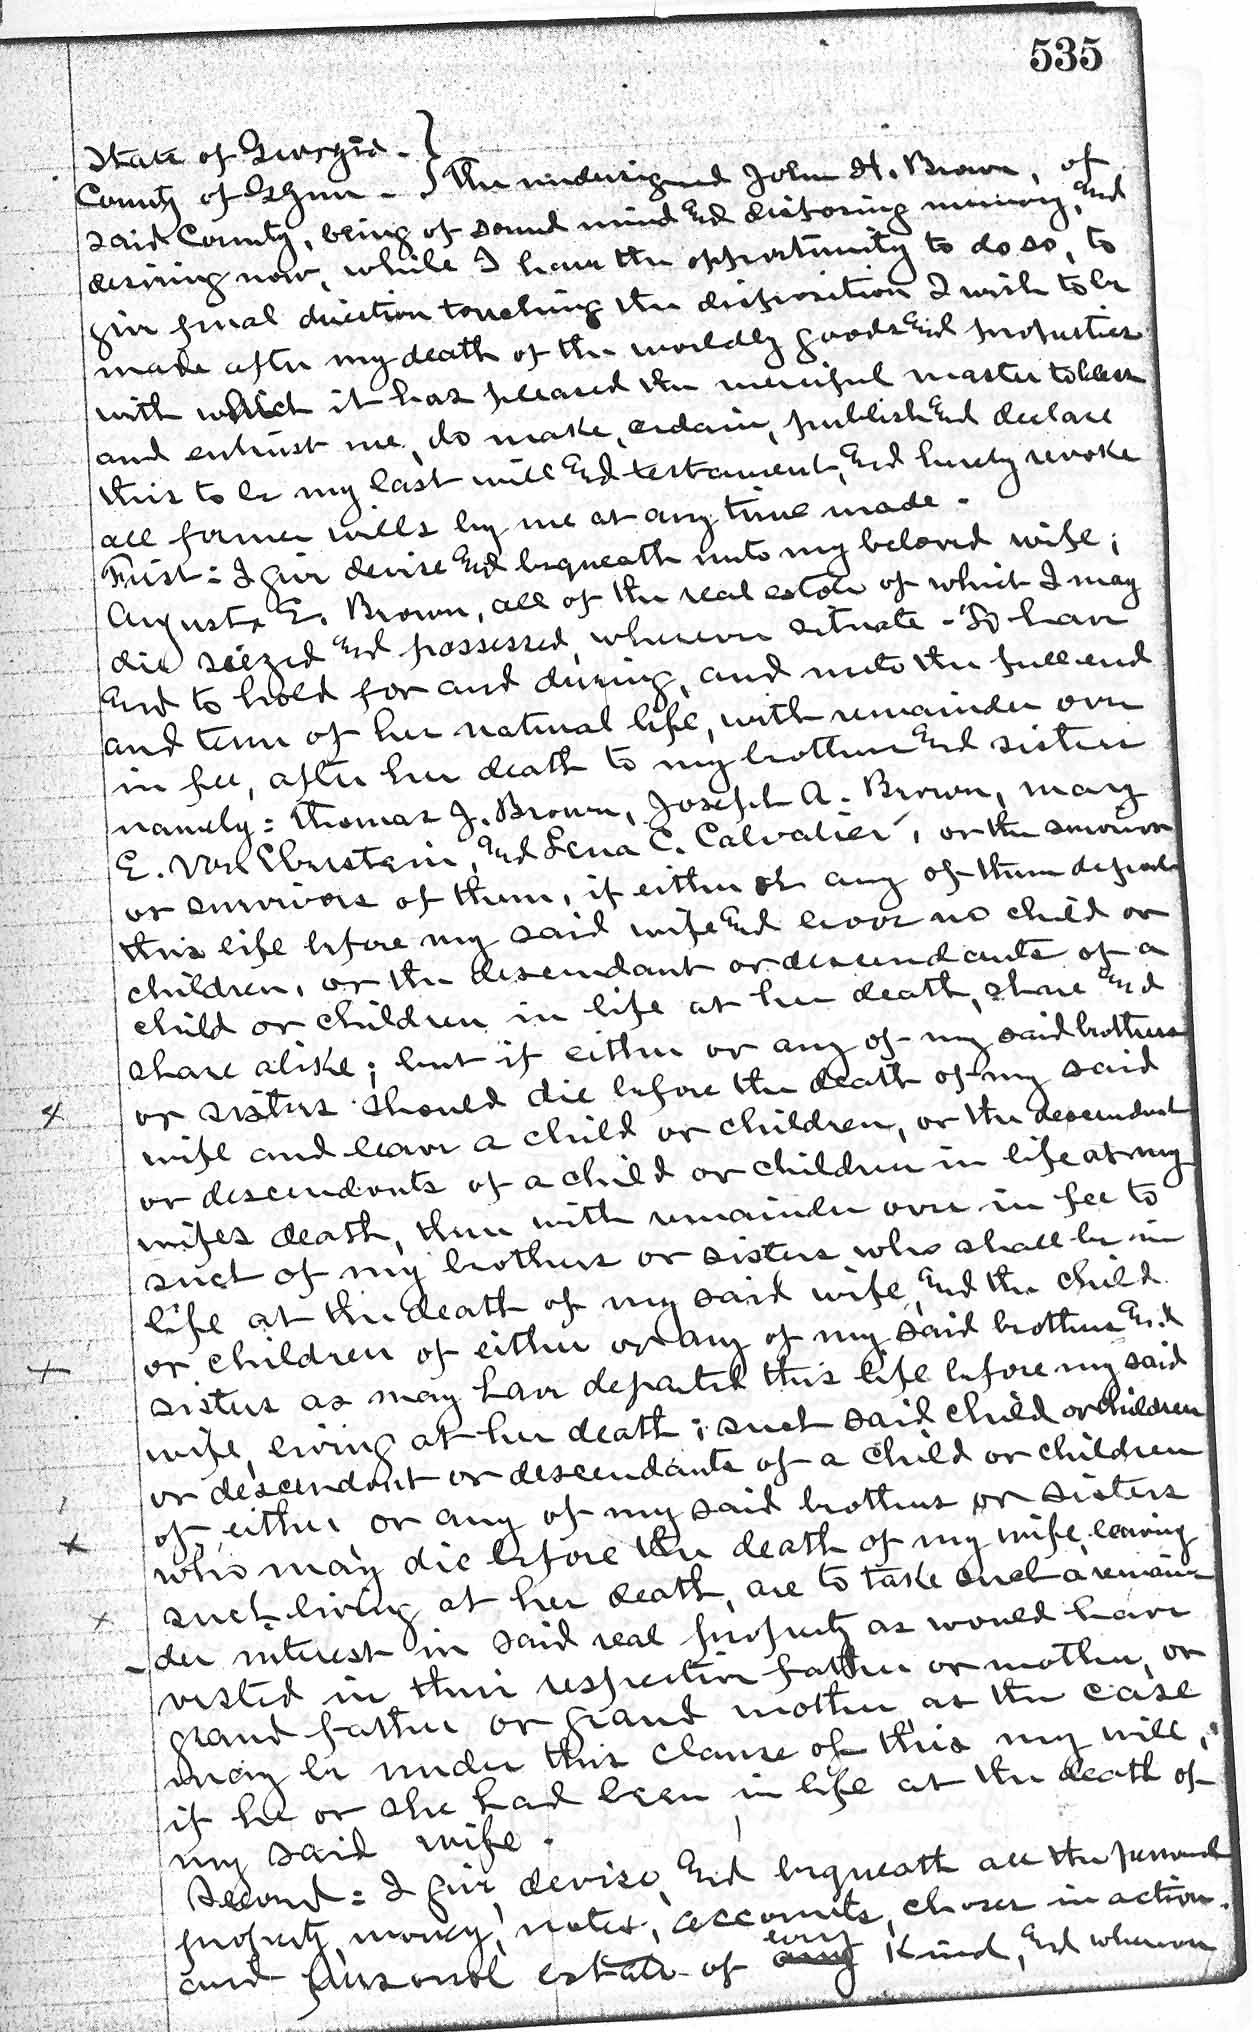 535
State of Georgia - }
County of Glynn - } The undersigned John H. Brown, of
said County, being of sound mind and disposing memory, and
desiring now, while I have the opportunity to do so, to
give final direction touching the disposition I wish to be
made after my death of the worldly goods and properties
with which it has pleased the merciful master to bless
and entrust me, do make, ordain, publish and declare
this to be my last will and testament, and hereby revoke
all former wills by me at any time made -
First = I give devise and bequeath unto my beloved wife;
Augusta E. Brown, all of the real estate of which I may
die seized and possessed, wherever situate - To have
and to hold for and during, and unto the full end
and term of her natural life, with remainder over
in fee, after her death to my brothers and sisters
namely: Thomas J. Brown, Joseph A. Brown, Mary
E. Von Eberstein, and Lena C. Calvalier, or the survivor
or survivors of them, if either or any of them depart
this life before my said wife and leave no child or
children, or the descendant or descendants of a
child or children in life at her death, share and
share alike; but if either or any of my said brothers
or sisters should die before the death of my said
4
wife and leave a child or children, or the descendant
or descendants of a child or children in life at my
wifes death, then with remainder over in fee to
such of my brothers or sisters who shall be in
life at the death of my said wife, and the child
or children of either or any of my said brothers and
x
sisters as may have departed this life before my said
wife, living at her death; such said child or children
or descendant or descendants of a child or children
of either or any of my said brothers or sisters
x
who may die before the death of my wife, leaving
such living at her death, are to take such a remain-
x
-der interest in said real property as would have
vested in their respective father or mother, or
grand father or grand mother, as the case
may be under this clause of this my will,
if he or she had been in life at the death of
my said wife.
Second = I give, devise, and bequeath all the personal
property, money, notes, accounts, choses in action.
and personal estate of any every kind, and wherever